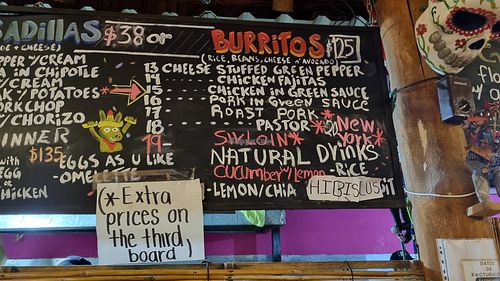 ADILLAS $38 or
DE + CHEESE)
PPER W/CREAM
A IN CHIPOTLE
/CREAM
K w/POTATOES *
ORKCHOP
/CHORIZO
INNER
with $135
EGG
or
HICKEN
-EGGS AS U LIKE
-OMELETTE
BURRITOS $125
(RICE, BEANS, CHEESE + AVOCADO)
13 CHEESE STUFFED GREEN PEPPER
14 CHICKEN FAJITAS
15 CHICKEN IN GREEN SAUCE
16 PORK IN GREEN SAUCE
17 ROAST PORK *
18 PASTOR *
19 SIRLOIN *20 New York *
NATURAL DRINKS
CUCUMBER/lemon -RICE
-LEMON/CHIA HIBISCUS
(* Extra
prices on
the third
board)
DATOS
DE
FACTURACIÓN